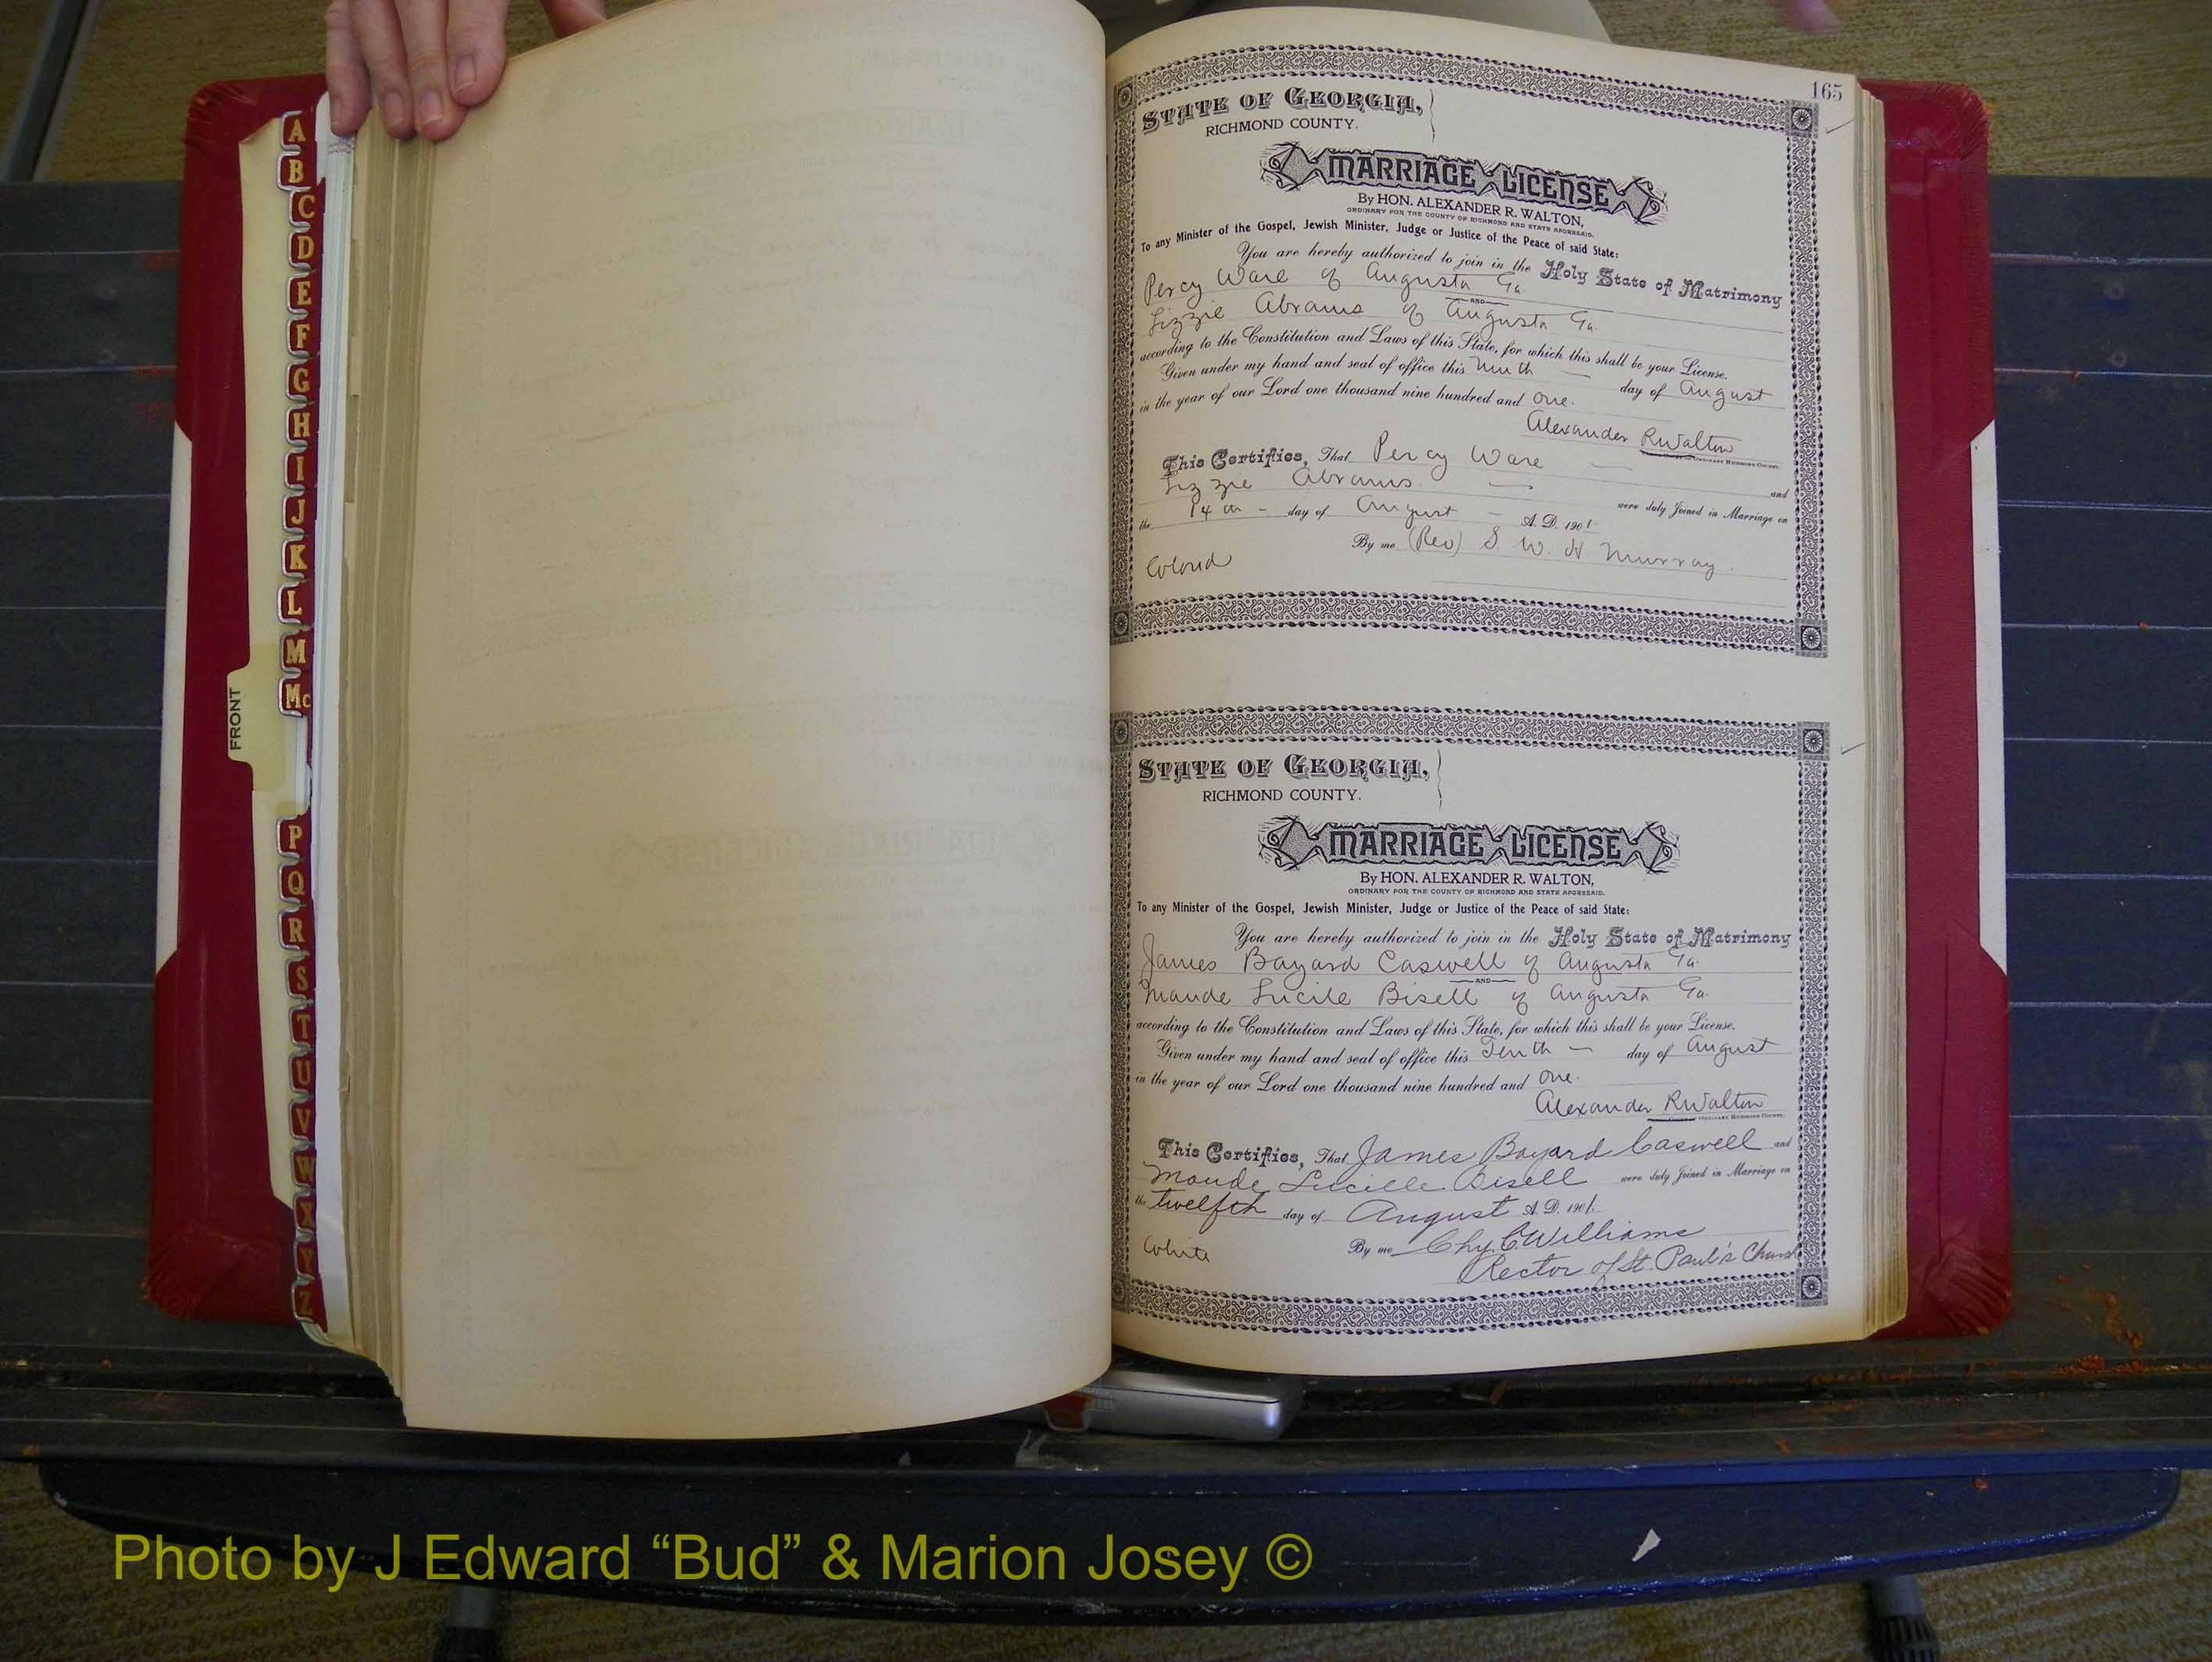 A
B
C
D
E
F
G
H
I
J
K
L
M
Mc
FRONT
P
Q
R
S
T
U
V
W
X
Y
Z
165
STATE OF GEORGIA,
RICHMOND COUNTY.
MARRIAGE LICENSE
By HON. ALEXANDER R. WALTON,
ORDINARY FOR THE COUNTY OF RICHMOND AND STATE AFORESAID.
To any Minister of the Gospel, Jewish Minister, Judge or Justice of the Peace of said State:
You are hereby authorized to join in the Holy State of Matrimony
Percy Ware of Augusta Ga
AND
Lizzie Abrams of Augusta Ga.
according to the Constitution and Laws of this State, for which this shall be your License.
Given under my hand and seal of office this Ninth — day of August
in the year of our Lord one thousand nine hundred and one.
Alexander R Walton
ORDINARY RICHMOND COUNTY.
This Certifies, That Percy Ware — and
Lizzie Abrams. — were duly Joined in Marriage on
the 14th - day of August - A. D. 1901.
By me (Rev) S. W. H Murray.
Colored
STATE OF GEORGIA,
RICHMOND COUNTY.
MARRIAGE LICENSE
By HON. ALEXANDER R. WALTON,
ORDINARY FOR THE COUNTY OF RICHMOND AND STATE AFORESAID.
To any Minister of the Gospel, Jewish Minister, Judge or Justice of the Peace of said State:
You are hereby authorized to join in the Holy State of Matrimony
James Bayard Caswell of Augusta Ga.
AND
Maude Lucile Bisell of Augusta Ga.
according to the Constitution and Laws of this State, for which this shall be your License.
Given under my hand and seal of office this Tenth — day of August
in the year of our Lord one thousand nine hundred and one.
Alexander R Walton
ORDINARY RICHMOND COUNTY.
This Certifies, That James Bayard Caswell and
Maude Lucille Bisell were duly Joined in Marriage on
the twelfth day of August A. D. 1901.
By me Chas. C. Williams
White
Rector of St. Paul's Church
Photo by J Edward “Bud” & Marion Josey ©